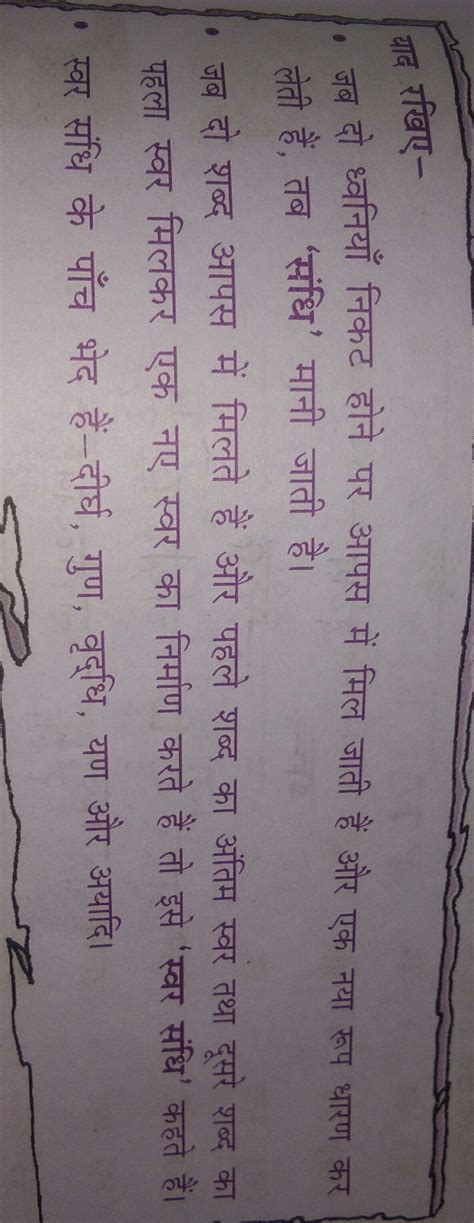 याद रखिए–
• जब दो ध्वनियाँ निकट होने पर आपस में मिल जाती हैं और एक नया रूप धारण कर
लेती हैं, तब ‘संधि’ मानी जाती है।
• जब दो शब्द आपस में मिलते हैं और पहले शब्द का अंतिम स्वर तथा दूसरे शब्द का
पहला स्वर मिलकर एक नए स्वर का निर्माण करते हैं तो इसे ‘स्वर संधि’ कहते हैं।
• स्वर संधि के पाँच भेद हैं–दीर्घ, गुण, वृद्धि, यण और अयादि।